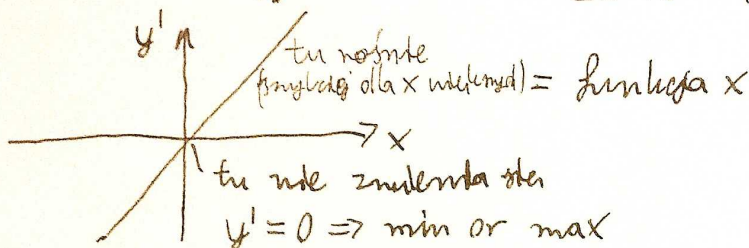 y'
tu rośnie
(szybciej dla x większych) = funkcja x
x
tu nie zmienia się
y' = 0 => min or max